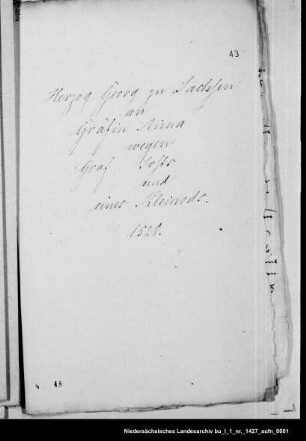 43
Herzog Georg zu Sachsen
an
Gräfin Anna
wegen
Graf Josts
und
eines Kleinods.
1528.
18
Niedersächsisches Landesarchiv bu_l_1_nr._1427_aufn_0081